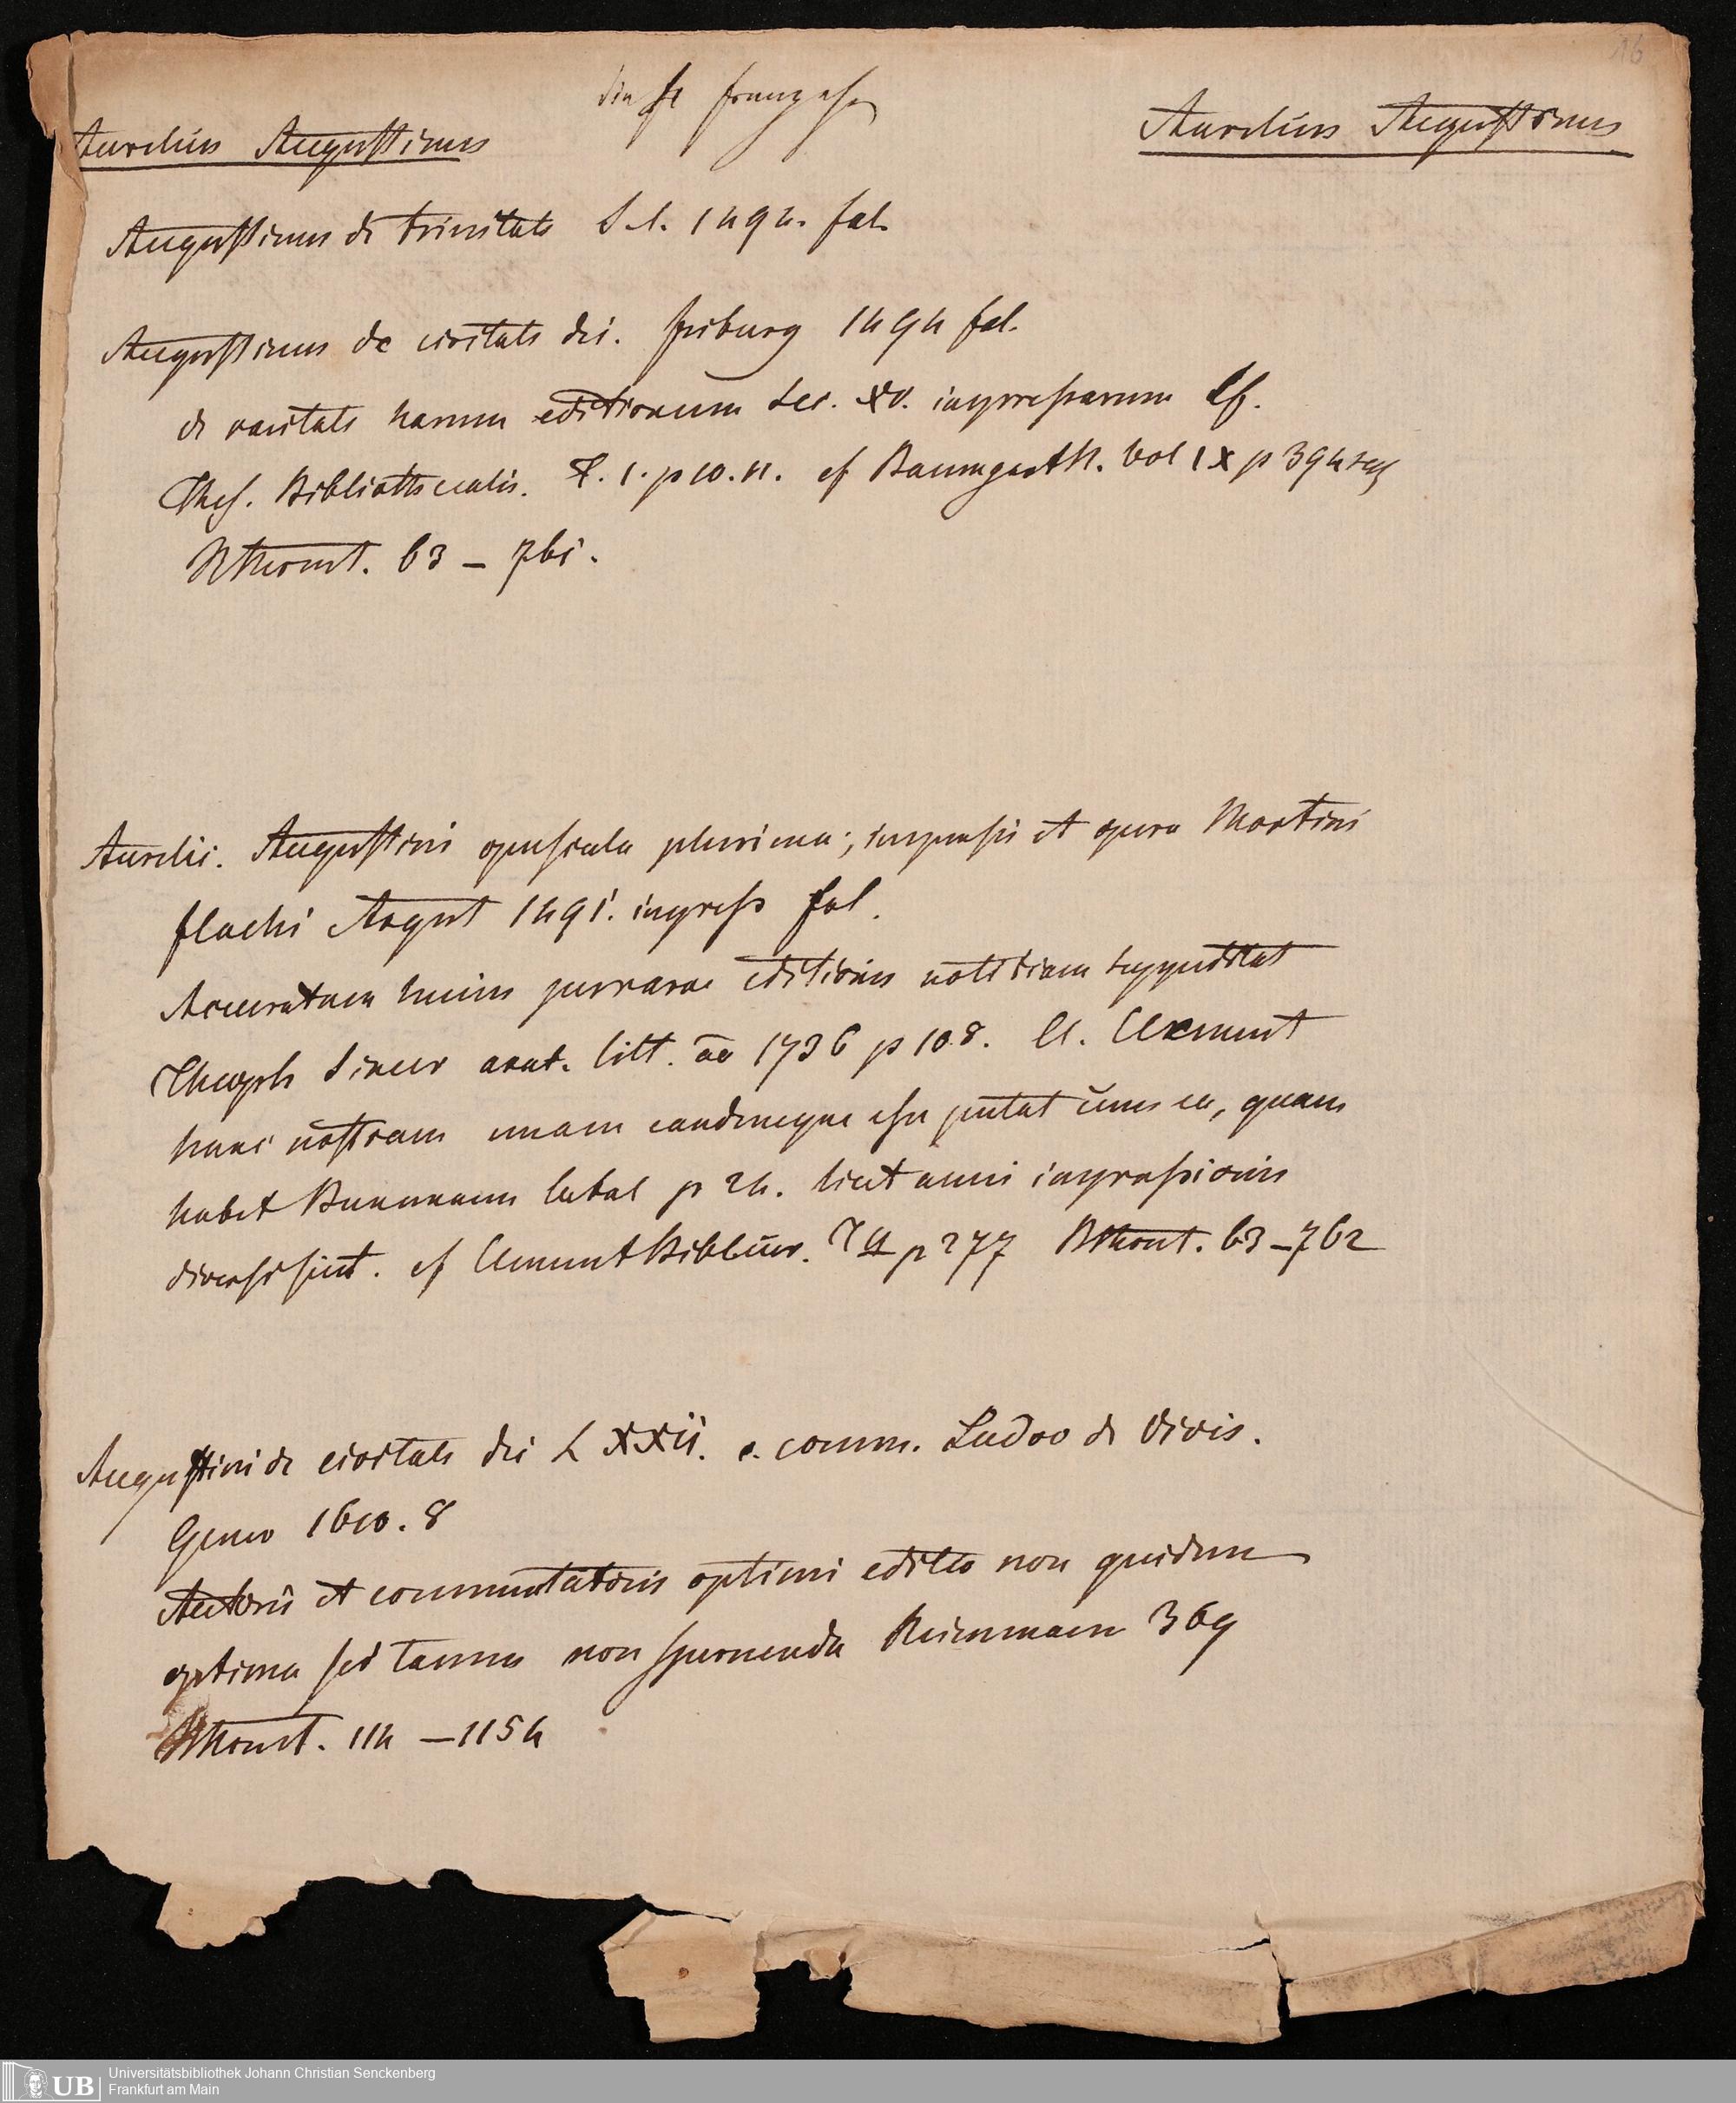 16
Aurelius Augustinus
Aurelius Augustinus
Augustinus de trinitate S. l. 1494. fol.
Augustinus de civitate dei. friburg 1494 fol.
de raritate harum editionum Sec. XV. impressarum Cf.
Thes. Bibliothecalis. T. 1. p 10. 11. cf Baumgarth. Vol IX p 394 seq
63 – 761.
Aurelii. Augustini opuscula plurima; impensis et opera Martini
flachi Argent 1491. impress fol.
Accuratam huius perrarae editionis notitiam suppeditat
Theoph Sincer litt. ao 1736 p 108. Cl. Clement
hanc nostram unam eandemque esse putat cum ea, quam
habet Bunemann Catal p 24. licet anni impressionis
diversi sint. cf Clement Bibl cur. T II p 277 63 – 762
Augustini de civitate dei L XXII. c. comm. Ludov de Vivis.
Genev 1610. 8
Autoris et commentatoris optimi editio non quidem
optima sed tamen non spernenda Reimmann 369
114 – 1154
UB
Universitätsbibliothek Johann Christian Senckenberg
Frankfurt am Main